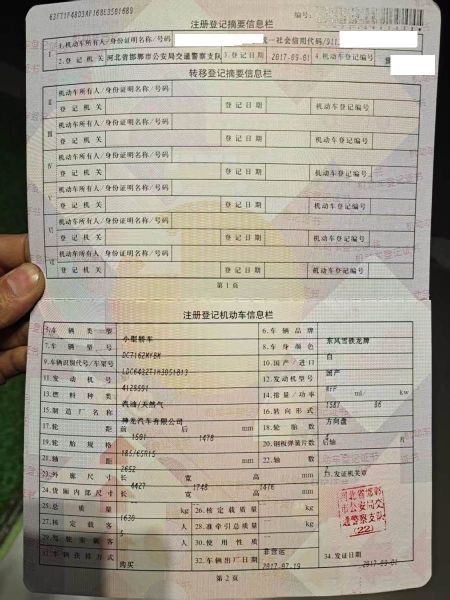 注册登记摘要信息栏
编号:
Ⅰ 1.机动车所有人/身份证明名称/号码 一社会信用代码/911
2.登记机关 河北省邯郸市公安局交通警察支队 3.登记日期 2017-09-01 4.机动车登记编号
转移登记摘要信息栏
Ⅱ 机动车所有人/身份证明名称/号码
登记机关 登记日期 机动车登记编号
Ⅲ 机动车所有人/身份证明名称/号码
登记机关 登记日期 机动车登记编号
Ⅳ 机动车所有人/身份证明名称/号码
登记机关 登记日期 机动车登记编号
Ⅴ 机动车所有人/身份证明名称/号码
登记机关 登记日期 机动车登记编号
Ⅵ 机动车所有人/身份证明名称/号码
登记机关 登记日期 机动车登记编号
Ⅶ 机动车所有人/身份证明名称/号码
登记机关 登记日期 机动车登记编号
第1页
注册登记机动车信息栏
5.车辆类型 小型轿车 6.车辆品牌 东风雪铁龙牌
7.车辆型号 8.车身颜色 白
9.车辆识别代号/车架号 10.国产/进口 国产
11.发动机号 4128501 12.发动机型号
13.燃料种类 汽油/天然气 14.排量/功率 1587 ml/ 86 kw
15.制造厂名称 神龙汽车有限公司 16.转向形式 方向盘
17.轮距 前 1501 后 1478 mm 18.轮胎数
19.轮胎规格 185/65R15 20.钢板弹簧片数 后轴 片
21.轴距 2652 mm 22.轴数
23.外廓尺寸 长 4427 宽 1748 高 1476 mm 33.发证机关章
24.货厢内部尺寸 长 宽 高 mm
25.总质量 1630 kg 26.核定载质量 kg
27.核定载客 5 人 28.准牵引总质量 kg
29.驾驶室载客 人 30.使用性质 非营运
31.车辆获得方式 购买 32.车辆出厂日期 2017-07-19 34.发证日期 2017-09-01
河北省邯郸
市公安局交
通警察支队
(22)
第2页